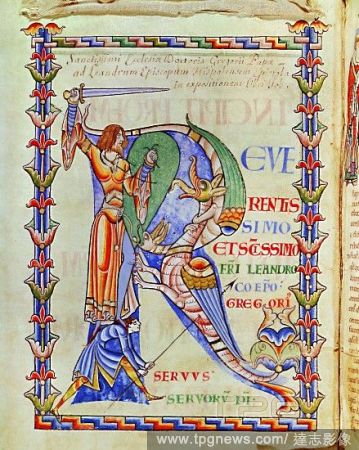 Sanctissimi Ecclesiæ Doctoris Gregorii Papæ
ad Leandrum Episcopum Hispalensem Epistola
in expositionem libri Iob.
R EVE
RENTIS
SIMO
ET SCISSIMO
FRI LEANDRO
COEPO
GREGORI
SERVVS
SERVORV DI
www.tpgnews.com/達志影像